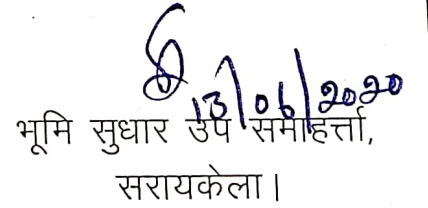 13/06/2020
भूमि सुधार उप समाहर्त्ता,
सरायकेला।